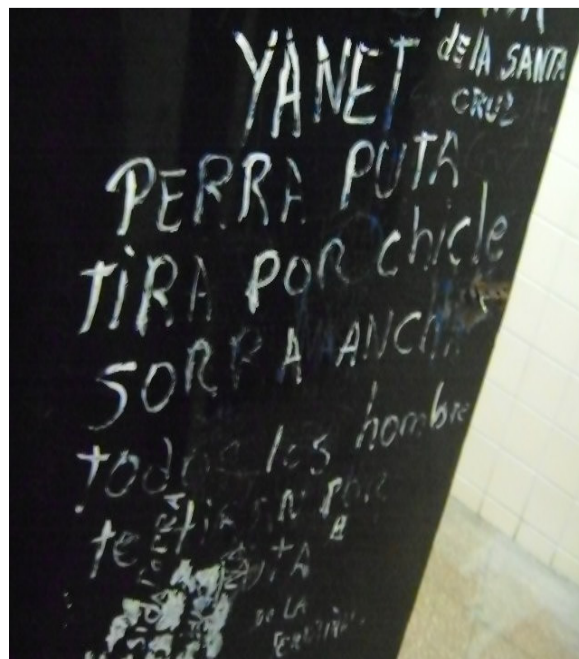 YANET de la SANTA CRUZ
PERRA PUTA
TIRA POR chicle
SORRA ANCHA
todos los hombre
te tiran POR
PUTA
DE LA